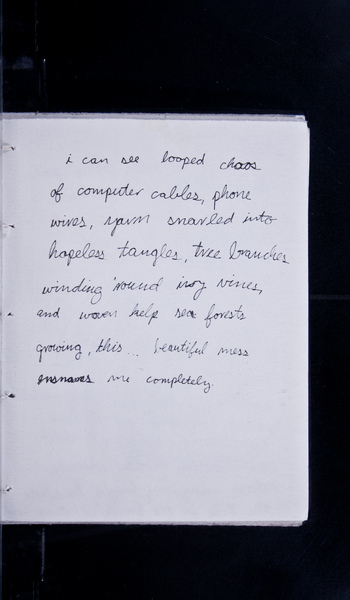 i can see looped chaos
of computer cables, phone
wires, yarn snarled into
hopeless tangles, tree branches
winding 'round ivy vines,
and woven kelp sea forests
growing, this... beautiful mess
ensnares me completely.